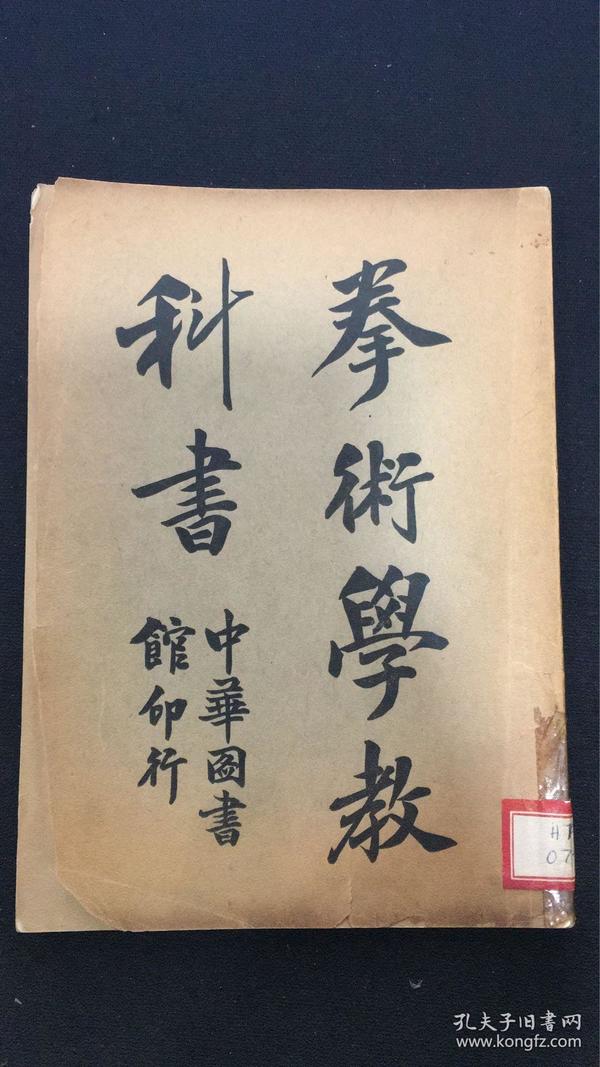 拳術學教
科書
中華圖書
館印行
H1
07
孔夫子旧书网
www.kongfz.com